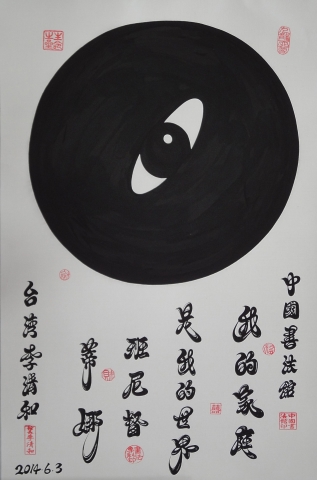 中國書法館
我的家庭
是我的世界
班尼督
蒂娜
台湾李清和
2014 6.3